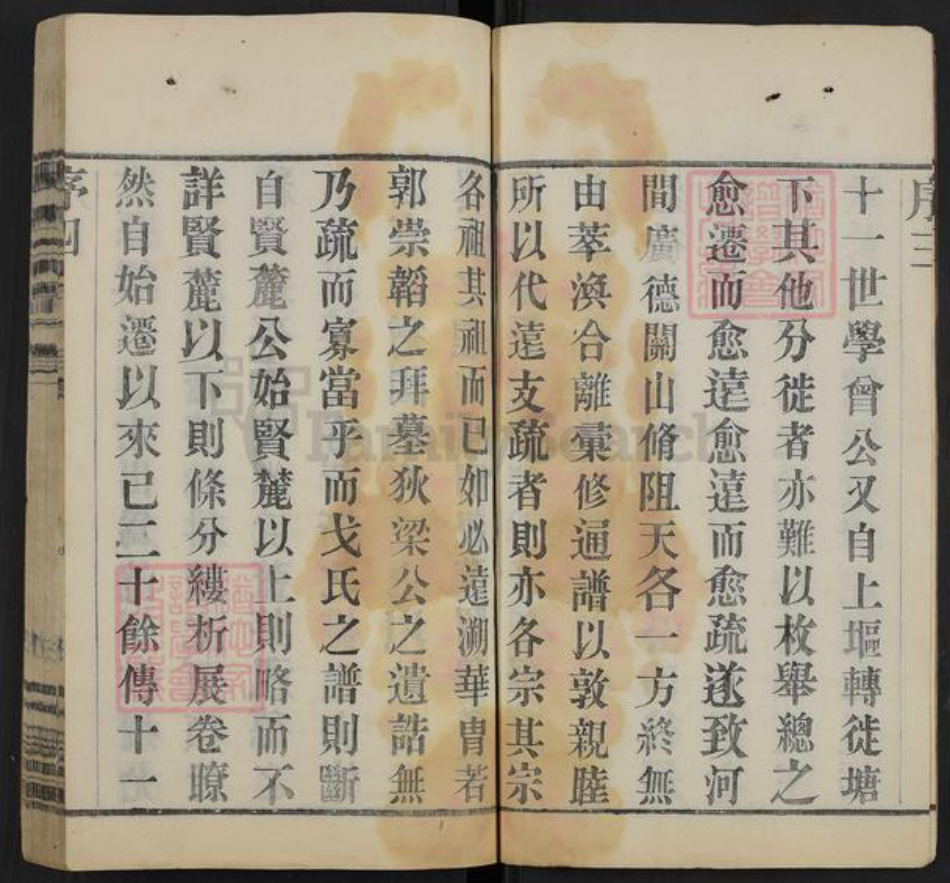 序三
十一世學曾公又自上塸轉徙塘
下其他分徙者亦難以枚舉總之
愈遷而愈遠愈遠而愈疏遂致河
間廣德關山脩阻天各一方終無
由萃渙合離彙修通譜以敦親睦
所以代遠支疏者則亦各宗其宗
各祖其祖而已如必遠溯華胄若
郭崇韜之拜墓狄梁公之遺誥無
乃疏而寡當乎而戈氏之譜則斷
自賢麓公始賢麓以上則略而不
詳賢麓以下則條分縷析展卷瞭
然自始遷以來已二十餘傳十一
序四
FamilySearch